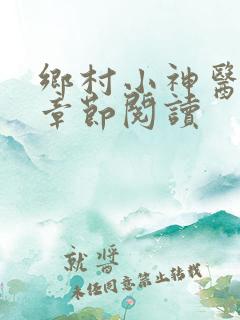 鄉村小神醫
章節閱讀
就醬
未经同意禁止转载